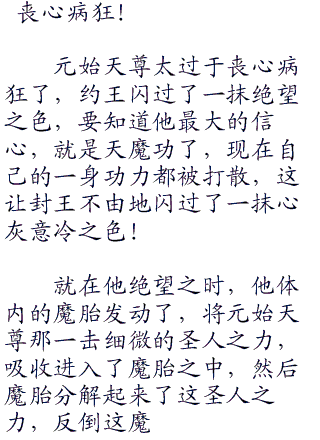 丧心病狂！
元始天尊太过于丧心病
狂了，约王闪过了一抹绝望
之色，要知道他最大的信
心，就是天魔功了，现在自
己的一身功力都被打散，这
让封王不由地闪过了一抹心
灰意冷之色！
就在他绝望之时，他体
内的魔胎发动了，将元始天
尊那一击细微的圣人之力，
吸收进入了魔胎之中，然后
魔胎分解起来了这圣人之
力，反倒这魔